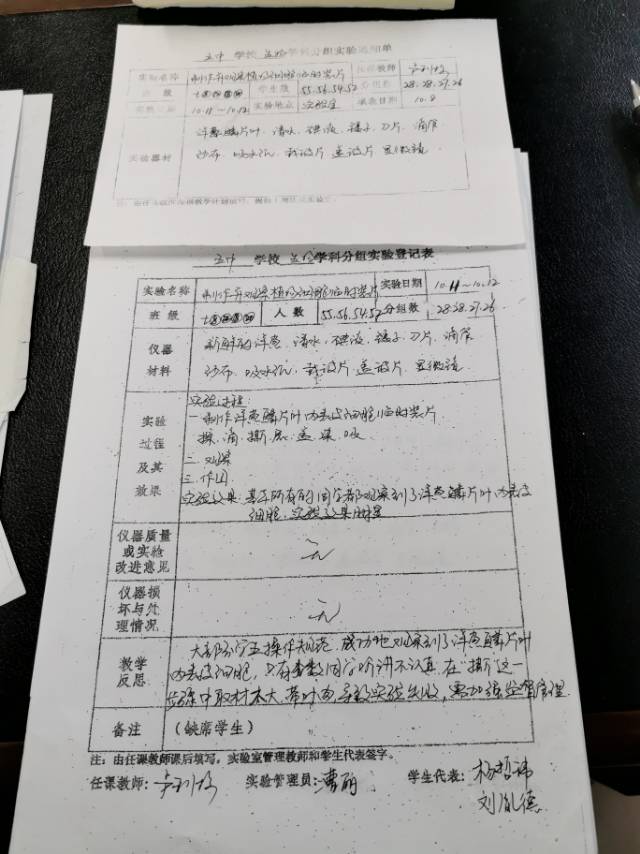 五中 学校 生物学科分组实验通知单
实验名称 制作并观察植物细胞临时装片 任课教师
班级 七 学生数 55.56.54.52 分组数 28.28.27.26
实验日期 10.11~10.12 实验地点 实验室 填表日期 10.8
洋葱鳞片叶、清水、碘液、镊子、刀片、滴管
实验器材
纱布、吸水纸、载玻片、盖玻片、显微镜
五中 学校 生物学科分组实验登记表
实验名称 制作并观察植物细胞临时装片 实验日期 10.11~10.12
班级 七 人数 55.56.54.52 分组数 28.28.27.26
仪器 新鲜的洋葱、清水、碘液、镊子、刀片、滴管
材料 纱布、吸水纸、载玻片、盖玻片、显微镜
实验过程:
一.制作洋葱鳞片叶内表皮细胞临时装片
实验
过程 擦、滴、撕、展、盖、染、吸
及其 二.观察
效果 三.作图
实验效果:基本所有的同学都观察到了洋葱鳞片叶内表皮
细胞,实验效果明显
仪器质量
或实验 无
改进意见
仪器损
坏与处 无
理情况
大部分学生操作规范,成功地观察到了洋葱鳞片叶
教学 内表皮细胞,只有少数同学听讲不认真,在“撕”这一
反思 步骤中取材太大,带叶肉,导致实验失败,需加强监督管理.
备注 (缺席学生)
注:由任课教师课后填写,实验室管理教师和学生代表签字。
任课教师: 实验管理员:曹丽 学生代表:杨哲玮
刘胤德